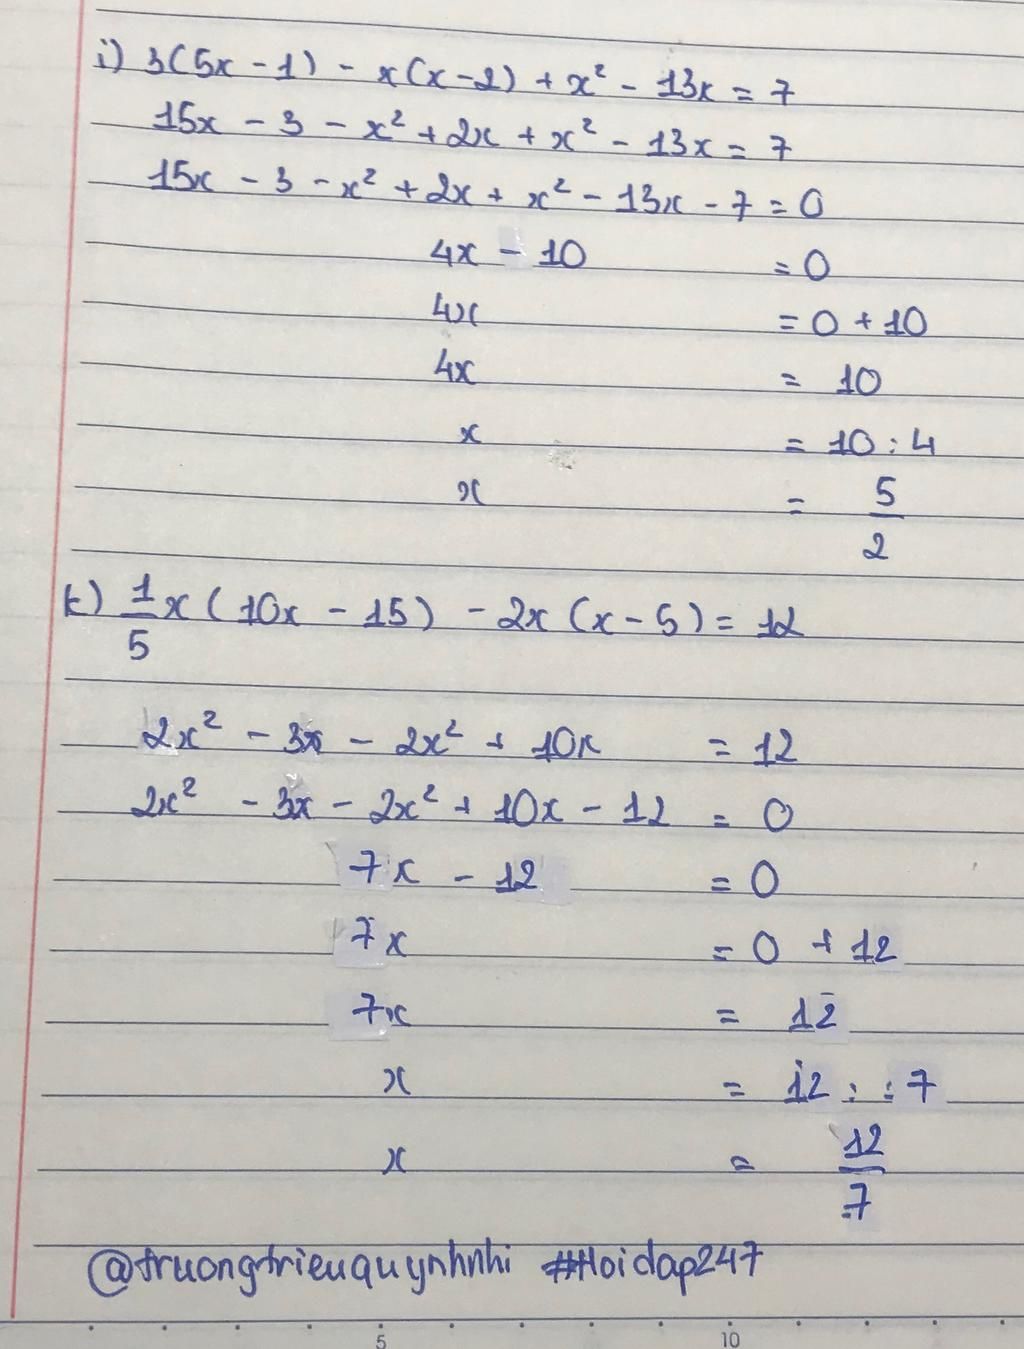 i) 3(5x - 1) - x(x - 2) + x² - 13x = 7
15x - 3 - x² + 2x + x² - 13x = 7
15x - 3 - x² + 2x + x² - 13x - 7 = 0
4x - 10 = 0
4x = 0 + 10
4x = 10
x = 10 : 4
x = 5/2
k) 1/5 x (10x - 15) - 2x (x - 5) = 12
2x² - 3x - 2x² + 10x = 12
2x² - 3x - 2x² + 10x - 12 = 0
7x - 12 = 0
7x = 0 + 12
7x = 12
x = 12 : : 7
x = 12/7
@truongtrieuquynhnhi #Hoidap247
5 10